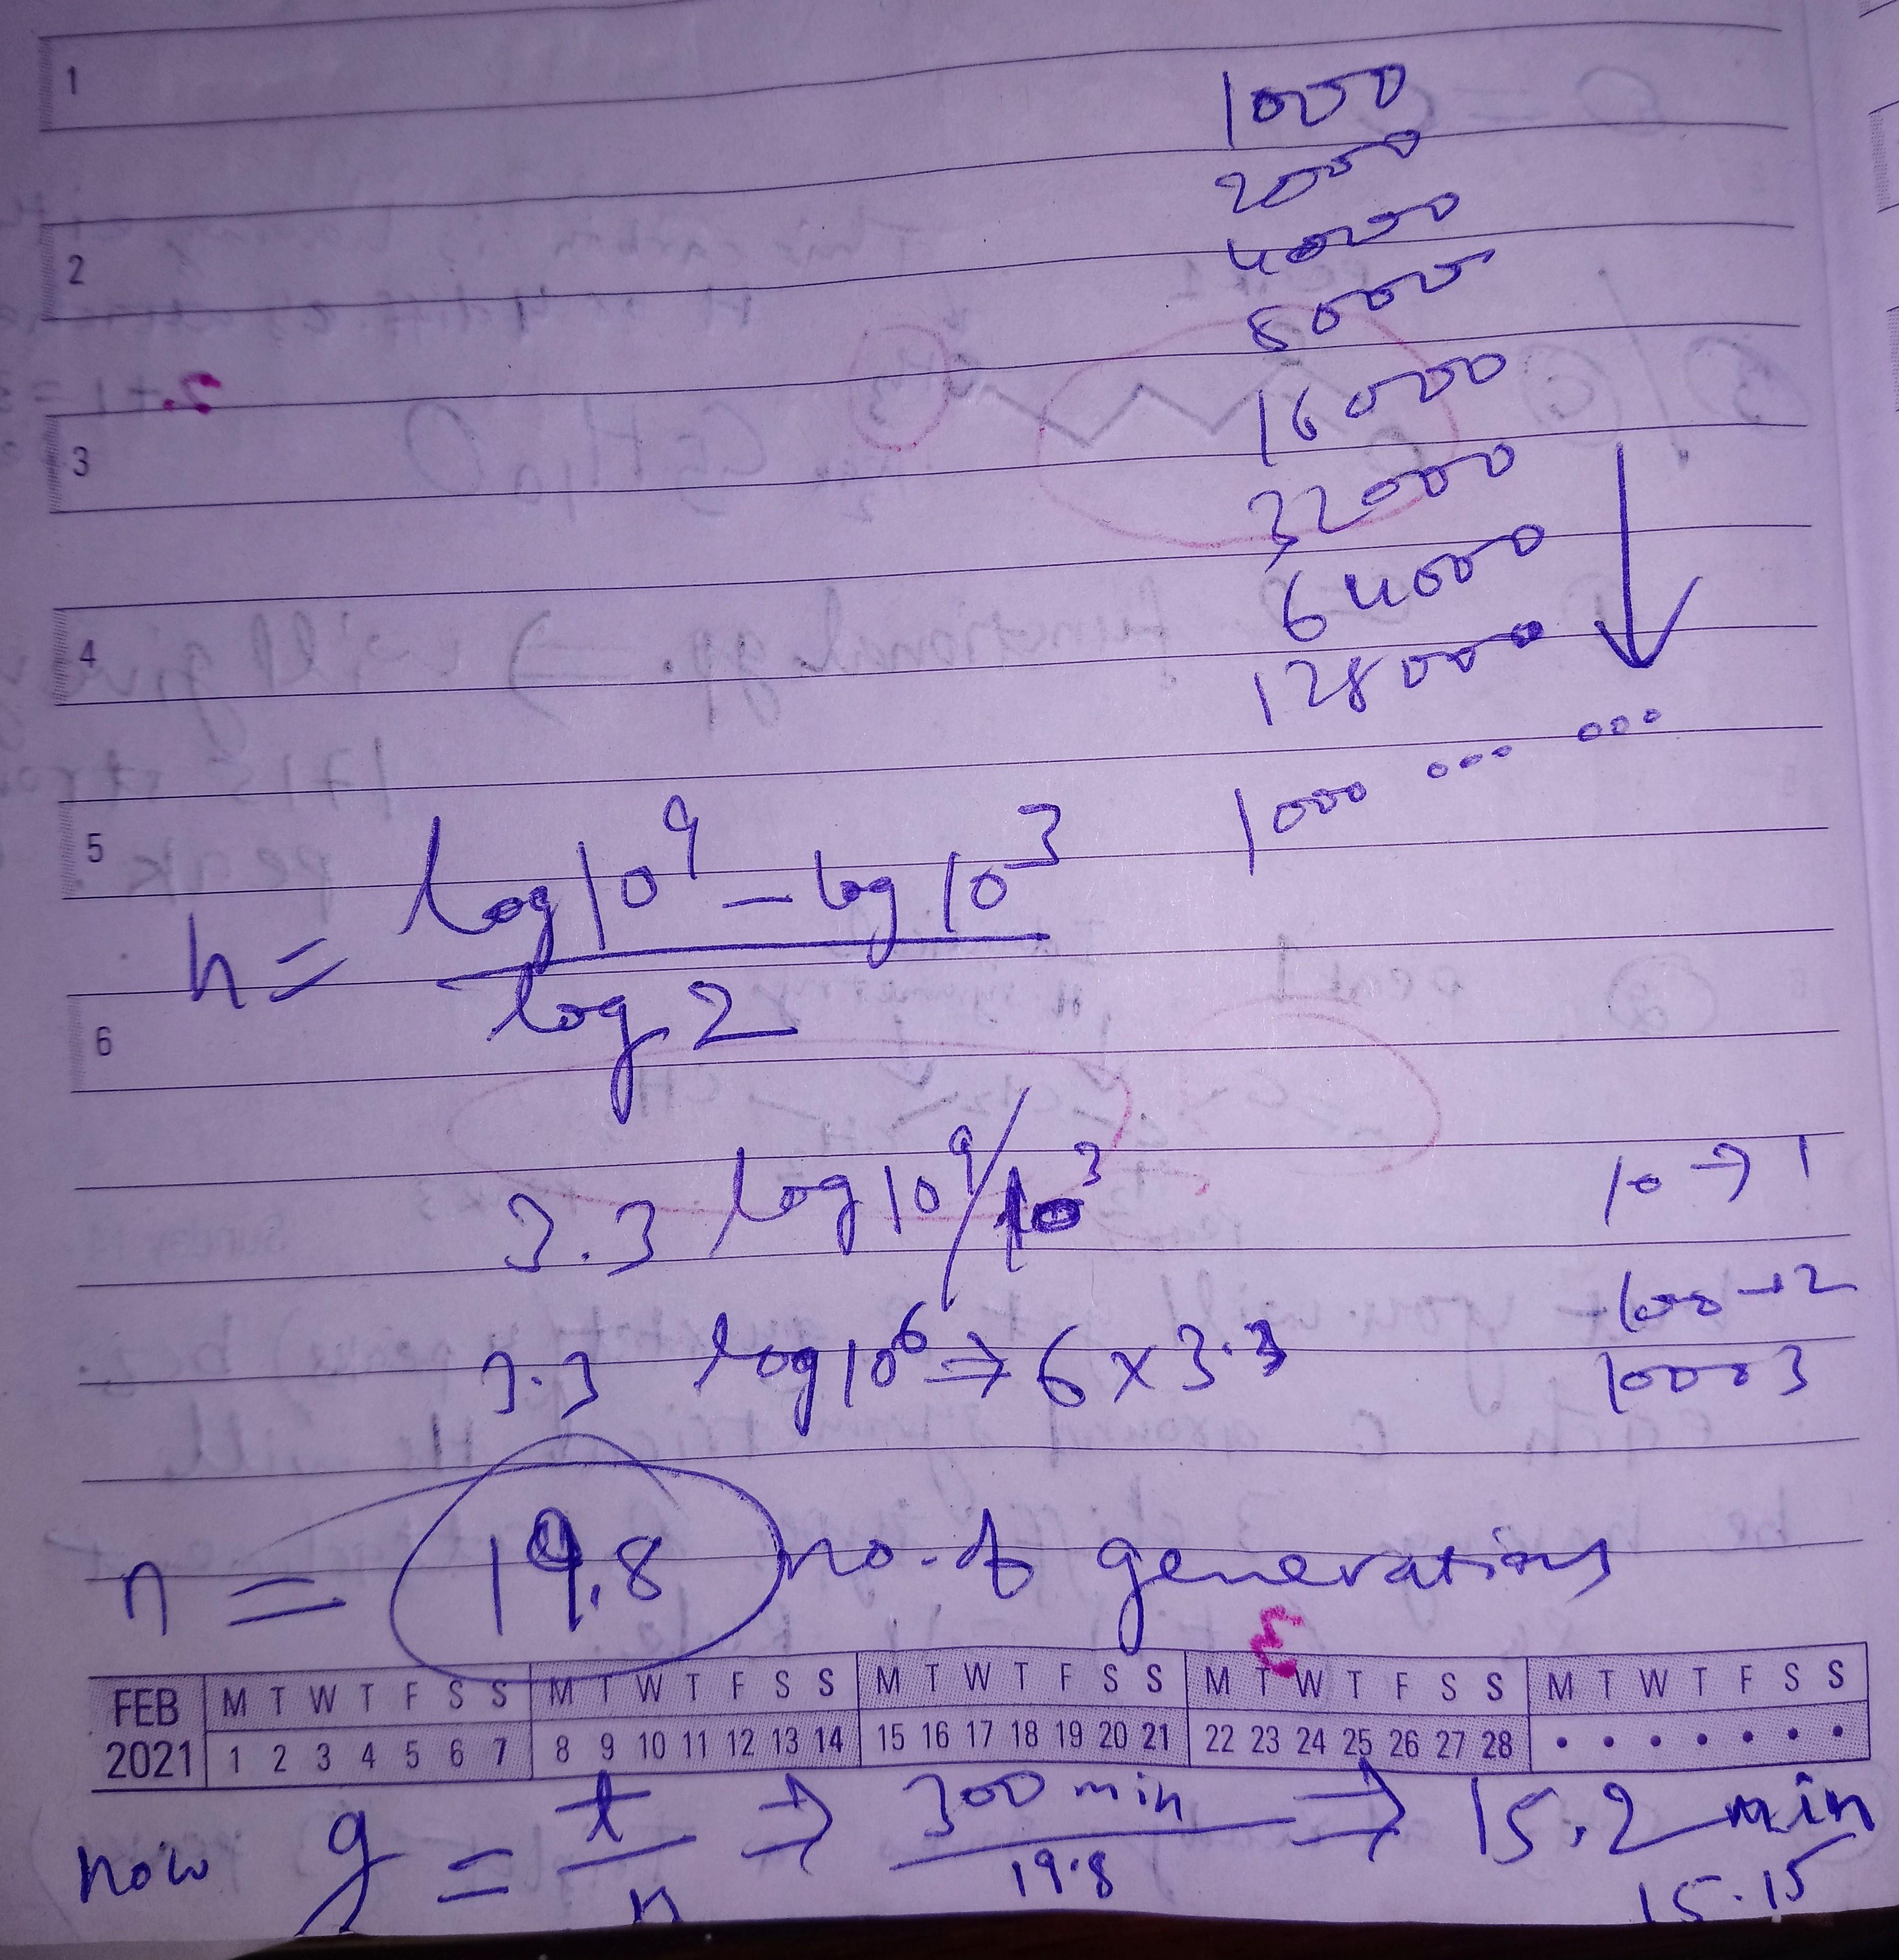 1
1000
2000
2
4000
8000
16000
3
32000
64000
4
128000
1000 ... ...
5
n = log 10^9 - log 10^3
log 2
6
3.3 log 10^9/10^3
10 → 1
100 → 2
3.3 log 10^6 ⇒ 6 x 3.3
1000 3
n = 19.8 no. of generations
FEB M T W T F S S M T W T F S S M T W T F S S M T W T F S S M T W T F S S
2021 1 2 3 4 5 6 7 8 9 10 11 12 13 14 15 16 17 18 19 20 21 22 23 24 25 26 27 28 • • • • • • •
now g = t/n ⇒ 300 min/19.8 ⇒ 15.2 min
15.15